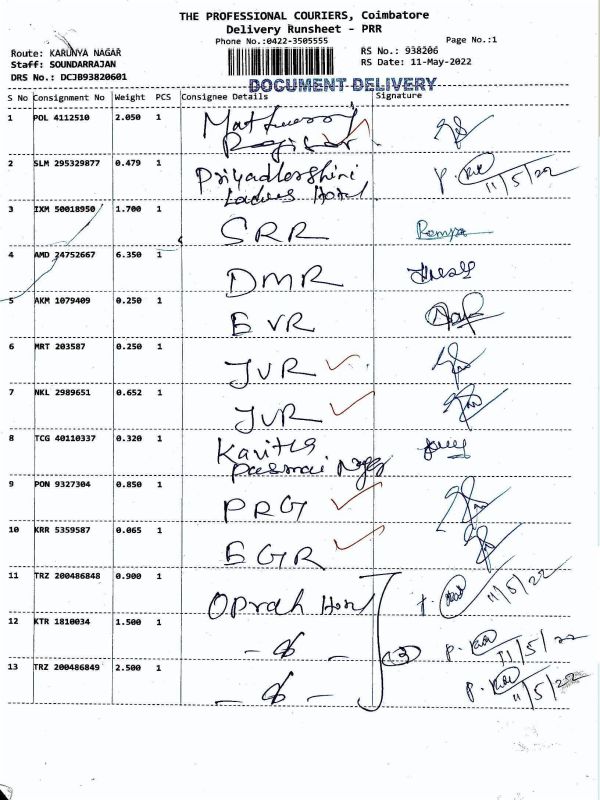 THE PROFESSIONAL COURIERS, Coimbatore
Delivery Runsheet - PRR
Phone No.:0422-3505555
Page No.:1
Route: KARUNYA NAGAR
Staff: SOUNDARRAJAN
DRS No.: DCJB93820601
RS No.: 938206
RS Date: 11-May-2022
DOCUMENT DELIVERY
S No Consignment No Weight PCS Consignee Details Signature
1 POL 4112510 2.050 1
2 SLM 295329877 0.479 1 Priyadharshini Ladies Hostel 11/5/22
3 IXM 50018950 1.700 1 SRR Ramya
4 AMD 24752667 6.350 1 DMR
5 AKM 1079409 0.250 1 EVR
6 MRT 203587 0.250 1 JVR
7 NKL 2989651 0.652 1 JVR
8 TCG 40110337 0.320 1 Kavitha
9 PON 9327304 0.850 1 PRG
10 KRR 5359587 0.065 1 EGR
11 TRZ 200486848 0.900 1 Oprah Hostel 11/5/22
12 KTR 1810034 1.500 1 (3) 11/5/22
13 TRZ 200486849 2.500 1 11/5/22